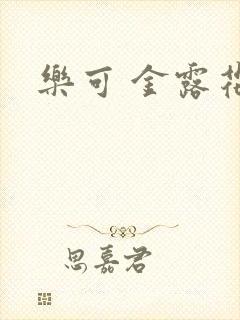 樂可 金露花
思嘉君